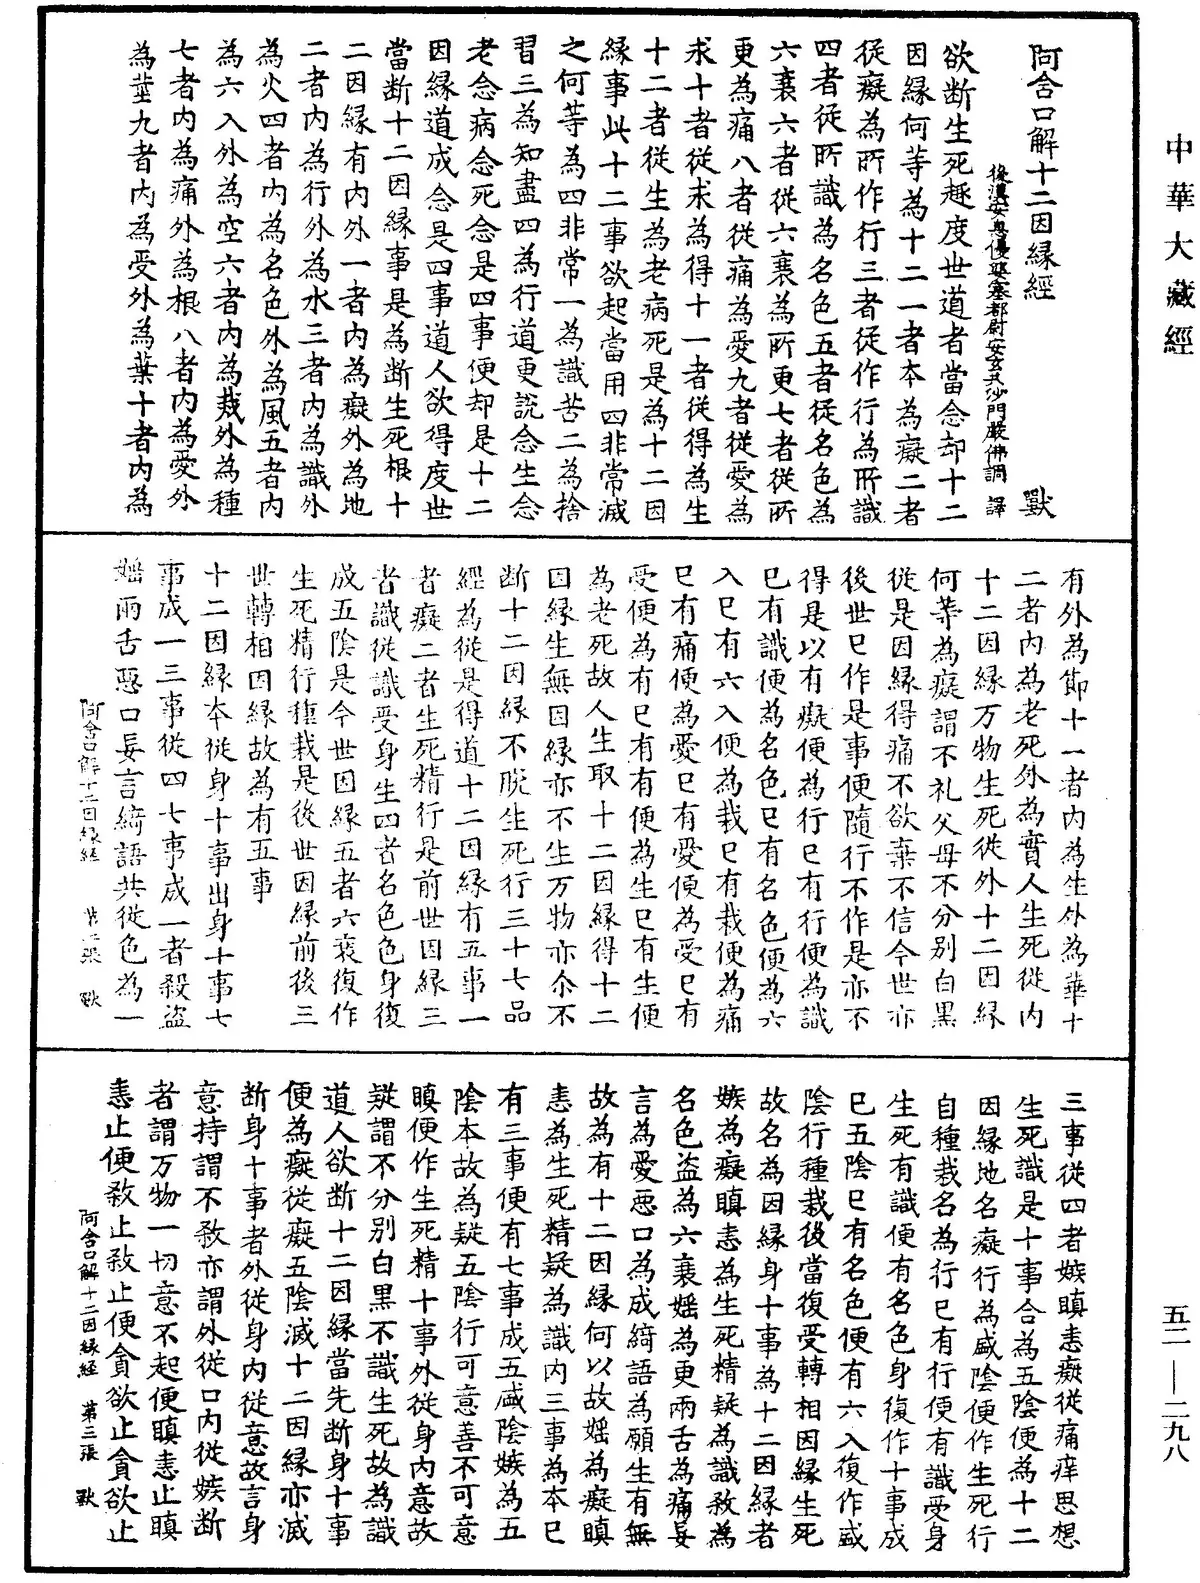 中華大藏經
阿含口解十二因緣經 獸
後漢安息優婆塞都尉安玄共沙門嚴佛調 譯
欲断生死趣度世道者當念却十二
因緣何等為十二一者本為癡二者
從癡為所作行三者從作行為所識
四者從所識為名色五者從名色為
六衰六者從六衰為所更七者從所
更為痛八者從痛為愛九者從愛為
求十者從求為得十一者從得為生
十二者從生為老病死是為十二因
緣事此十二事欲起當用四非常滅
之何等為四非常一為識苦二為捨
習三為知盡四為行道更說念生念
老念病念死念是四事便却是十二
因緣道成念是四事道人欲得度世
當断十二因緣事是為断生死根十
二因緣有内外一者内為癡外為地
二者内為行外為水三者内為識外
為火四者内為名色外為風五者内
為六入外為空六者内為栽外為種
七者内為痛外為根八者内為愛外
為莖九者内為受外為葉十者内為
有外為節十一者内為生外為華十
二者内為老死外為實人生死從内
十二因緣万物生死從外十二因緣
何等為癡謂不礼父母不分别白黑
從是因緣得痛不欲棄不信今世亦
後世已作是事便隨行不作是亦不
得是以有癡便為行已有行便為識
已有識便為名色已有名色便為六
入已有六入便為栽已有栽便為痛
已有痛便為愛已有愛便為受已有
受便為有已有有便為生已有生便
為老死故人生取十二因緣得十二
因緣生無因緣亦不生万物亦尒不
断十二因緣不脱生死行三十七品
經為從是得道十二因緣有五事一
者癡二者生死精行是前世因緣三
者識從識受身生四者名色色身復
成五陰是今世因緣五者六衰復作
生死精行種栽是後世因緣前後三
世轉相因緣故為有五事
十二因緣本從身十事出身十事七
事成一三事從四七事成一者殺盗
婬兩舌惡口妄言綺語共從色為一
阿含口解十二因緣經 第二張 獸
三事從四者嫉瞋恚癡從痛痒思想
生死識是十事合為五陰便為十二
因緣地名癡行為盛陰便作生死行
自種栽名為行已有行便有識受身
生死有識便有名色身復作十事成
已五陰已有名色便有六入復作盛
陰行種栽後當復受轉相因緣生死
故名為因緣身十事為十二因緣者
嫉為癡瞋恚為生死精疑為識敘為
名色盗為六衰婬為更兩舌為痛妄
言為愛惡口為成綺語為願生有無
故為有十二因緣何以故婬為癡瞋
恚為生死精疑為識内三事為本已
有三事便有七事成五盛陰嫉為五
陰本故為疑五陰行可意善不可意
瞋便作生死精十事外從身内意故
疑謂不分别白黑不識生死故為識
道人欲断十二因緣當先断身十事
便為癡從癡五陰滅十二因緣亦滅
断身十事者外從身内從意故言身
意持謂不敘亦謂外從口内從嫉断
者謂万物一切意不起便瞋恚止瞋
恚止便敘止敘止便貪欲止貪欲止
阿含口解十二因緣經 第三張 獸
五二——二九八